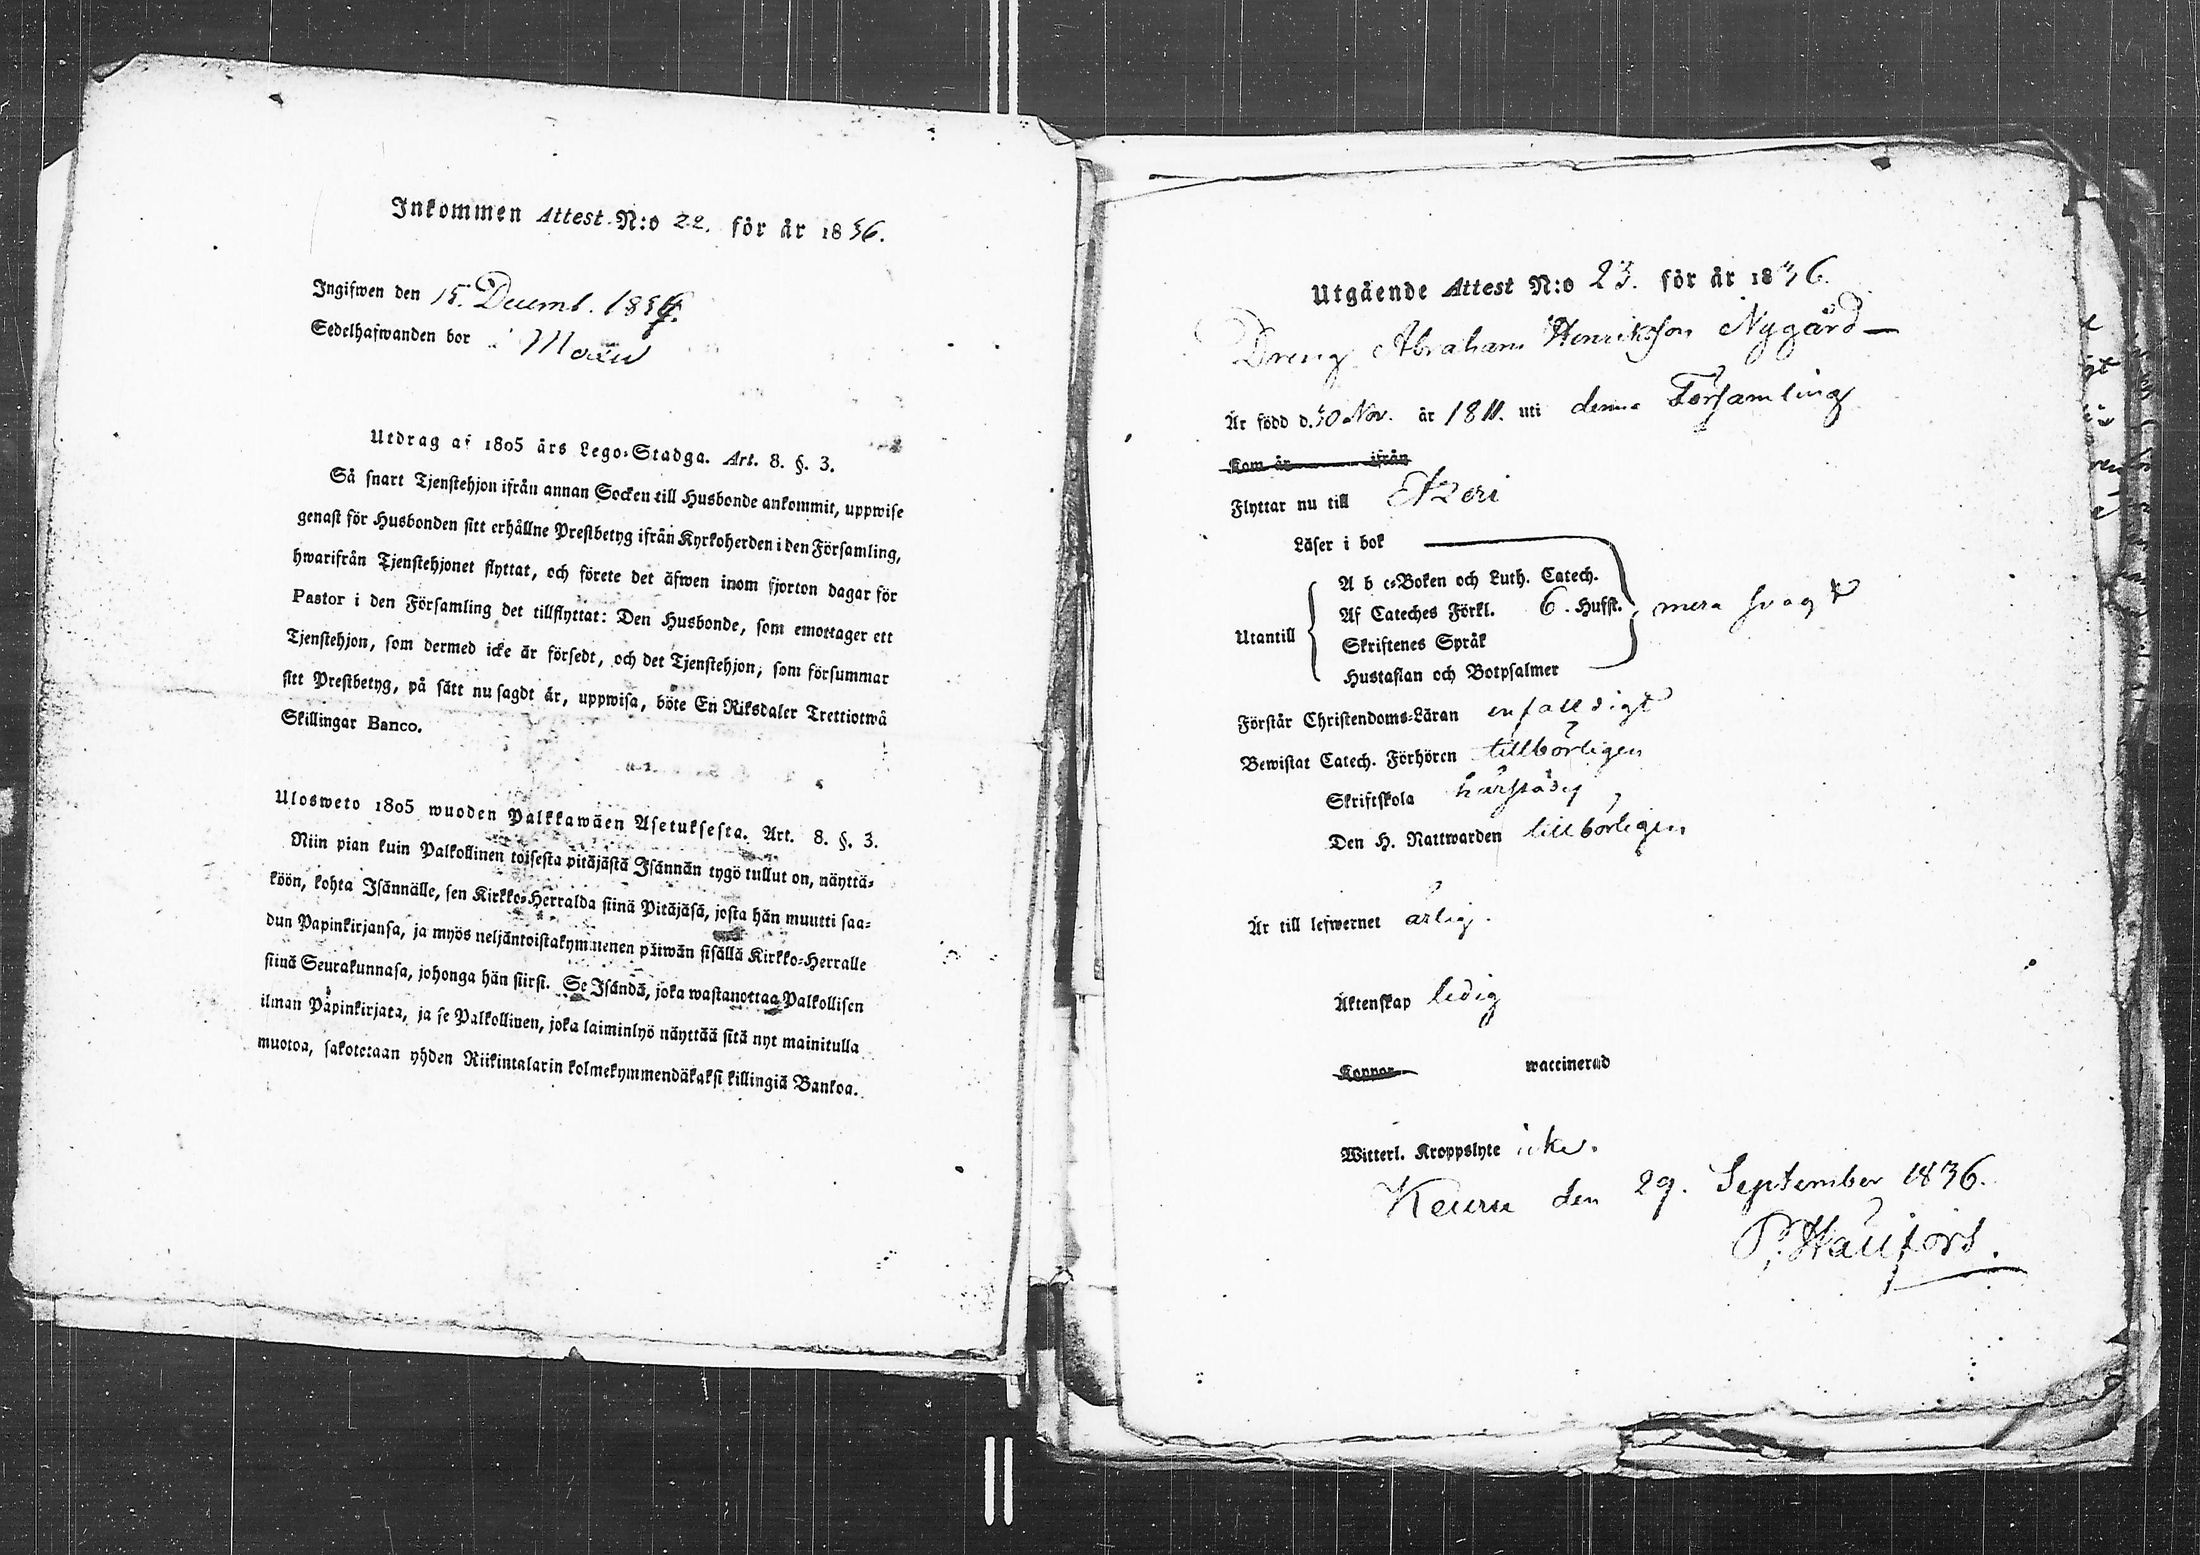 Inkommen Attest N:o 22. för år 1836.
Ingifwen den 15. Decemb. 1836.
Sedelhafwanden bor i
Utdrag af 1805 års Lego-Stadga. Art. 8. §. 3.
Så snart Tjenstehjon ifrån annan Socken till Husbonde ankommit, uppwise
genast för Husbonden sitt erhållne Prestbetyg ifrån Kyrkoherden i den Församling,
hwarifrån Tjenstehjonet flyttat, och förete det äfwen inom fjorton dagar för
Pastor i den Församling det tillflyttat: Den Husbonde, som emottager ett
Tjenstehjon, som dermed icke är försedt, och det Tjenstehjon, som försummar
sitt Prestbetyg, på sätt nu sagdt är, uppwisa, böte En Riksdaler Trettiotwå
Skillingar Banco.
Ulosweto 1805 wuoden Palkkawäen Asetuksesta. Art. 8. §. 3.
Niin pian kuin Palkollinen toisesta pitäjästä Isännän tygö tullut on, näyttä-
köön, kohta Isännälle, sen Kirkko-Herralda siinä Pitäjäsä, josta hän muutti saa-
dun Papinkirjansa, ja myös neljäntoistakymmenen päiwän sisällä Kirkko-Herralle
siinä Seurakunnasa, johonga hän siirsi. Se Isändä, joka wastanottaa Palkollisen
ilman Papinkirjata, ja se Palkollinen, joka laiminlyö näyttää sitä nyt mainitulla
muotoa, sakotetaan yhden Riikintalarin kolmekymmendäkaksi killingiä Bankoa.
Utgående Attest N:o 23. för år 1836.
Dreng Abraham Henriksson Nygård
Är född d. 30 Nov. år 1811. uti denna Församling
Kom år ifrån
Flyttar nu till Etzeri
Läser i bok
A b c-Boken och Luth. Catech.
Af Cateches Förkl. 6. Hufst. mera svagt
Utantill
Skriftenes Språk
Hustaflan och Botpsalmer
Förstår Christendoms-Läran enfalldigt
Bewistat Catech. Förhören tillbörligen
Skriftskola härstädes
Den H. Nattwarden tillbörligen
Är till lefwernet ärlig.
Äktenskap ledig
Koppor waccinerad
Witterl. Kroppslyte icke.
Keuru den 29. September 1836.